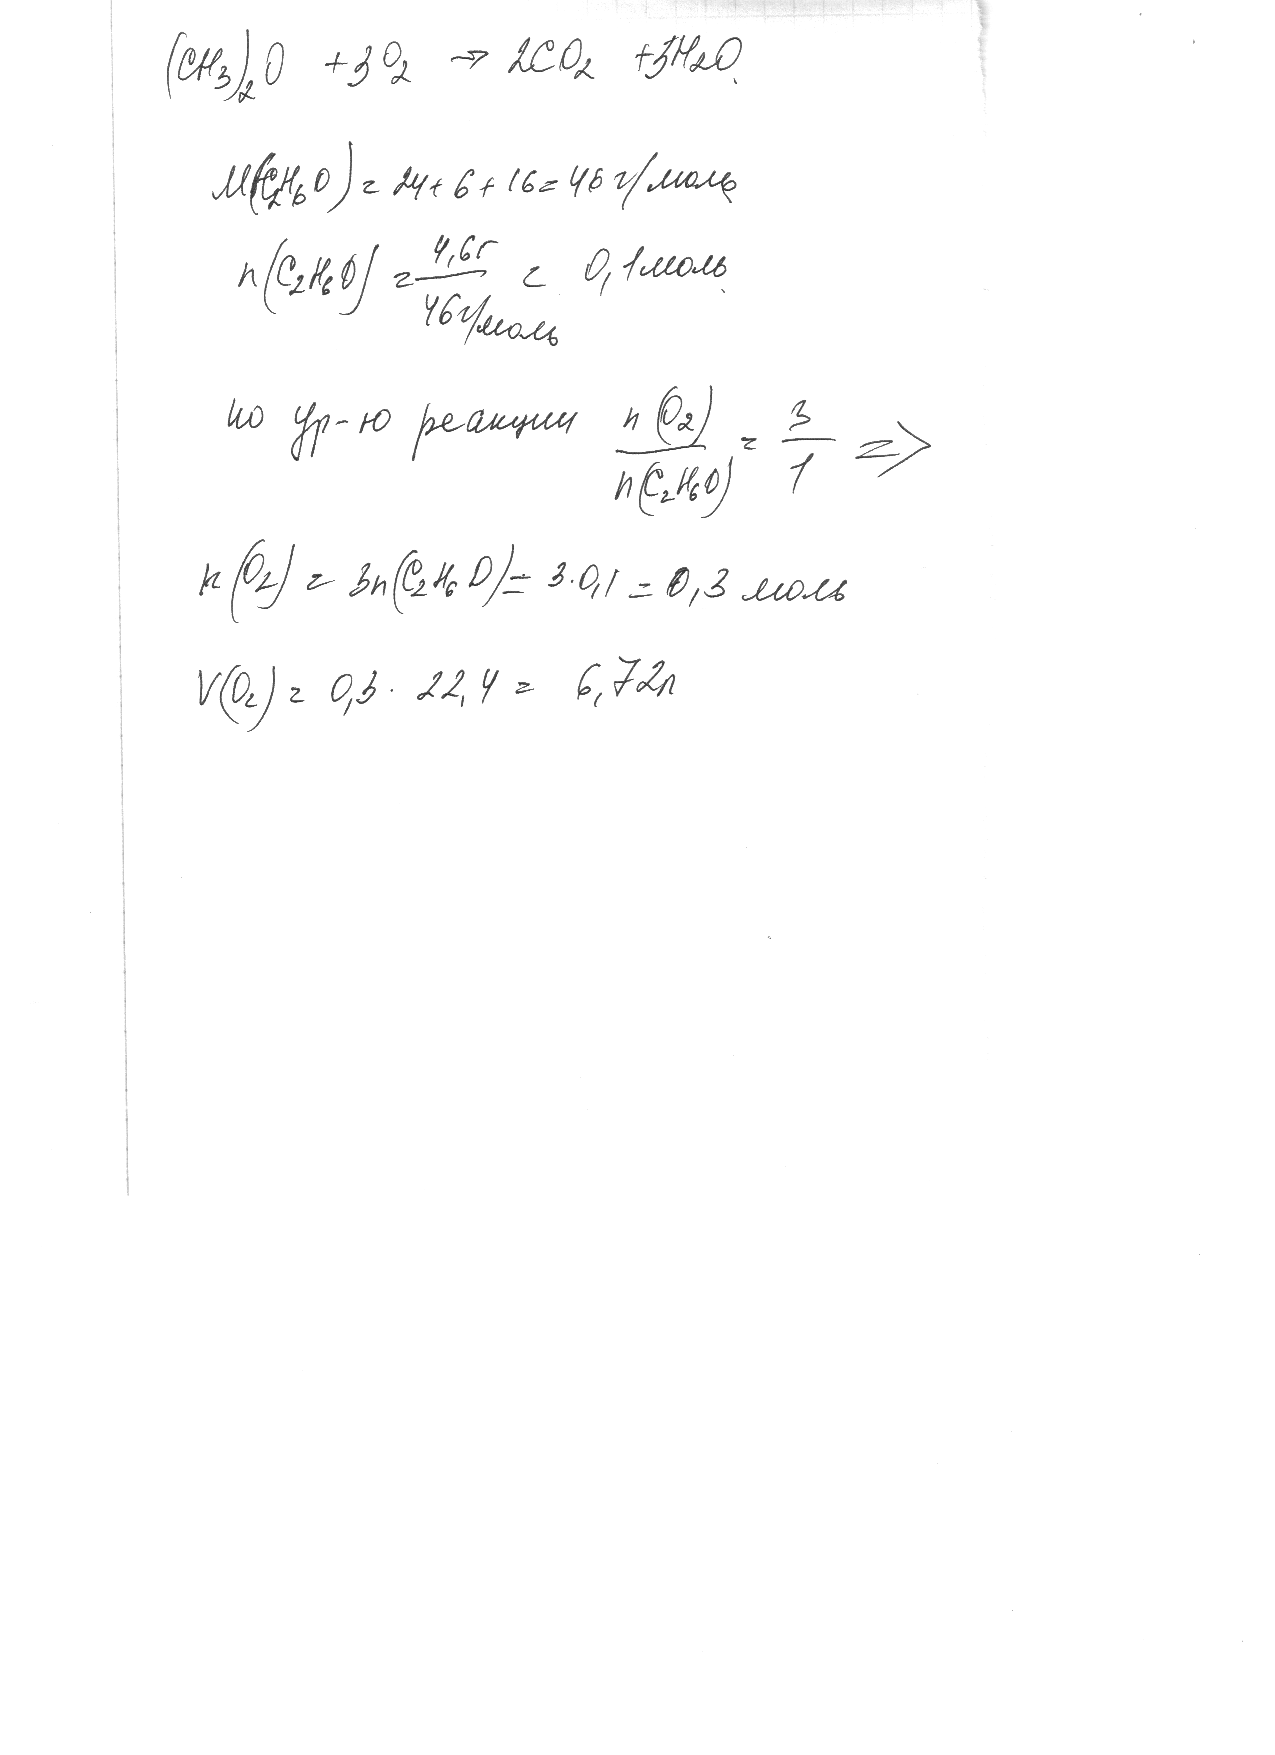 (CH3)2O + 3O2 → 2CO2 + 3H2O
M(C2H6O) = 24 + 6 + 16 = 46 г/моль
n(C2H6O) = 4,6г / 46г/моль = 0,1 моль
по ур-ю реакции n(O2) / n(C2H6O) = 3 / 1 =>
n(O2) = 3n(C2H6O) = 3·0,1 = 0,3 моль
V(O2) = 0,3 · 22,4 = 6,72л